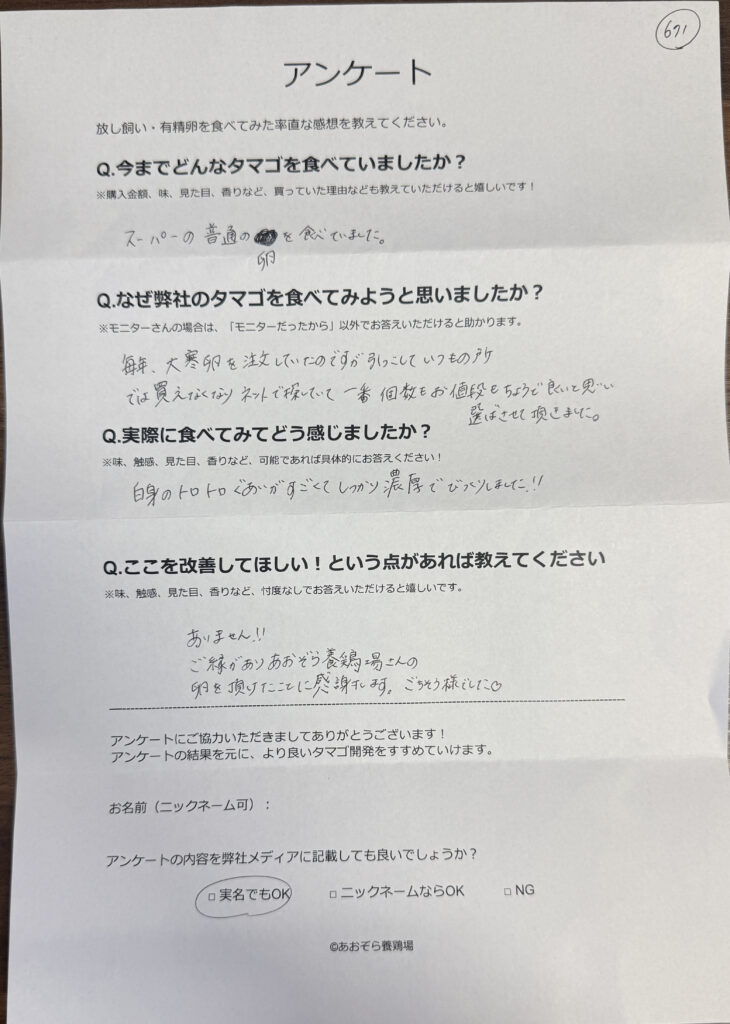 671
アンケート
放し飼い・有精卵を食べてみた率直な感想を教えてください。
Q.今までどんなタマゴを食べていましたか？
※購入金額、味、見た目、香りなど、買っていた理由なども教えていただけると嬉しいです！
スーパーの普通の を食べていました。
卵
Q.なぜ弊社のタマゴを食べてみようと思いましたか？
※モニターさんの場合は、「モニターだったから」以外でお答えいただけると助かります。
毎年、大寒卵を注文していたのですが引っこしていつもの所
では買えなくなりネットで探していて一番個数もお値段もちょうど良いと思い
選ばさせて頂きました。
Q.実際に食べてみてどう感じましたか？
※味、触感、見た目、香りなど、可能であれば具体的にお答えください！
白身のトロトロぐあいがすごくてしっかり濃厚でびっくりしました!!
Q.ここを改善してほしい！という点があれば教えてください
※味、触感、見た目、香りなど、忖度なしでお答えいただけると嬉しいです。
ありません!!
ご縁がありあおぞら養鶏場さんの
卵を頂けたことに感謝します。ごちそう様でした♡
アンケートにご協力いただきましてありがとうございます！
アンケートの結果を元に、より良いタマゴ開発をすすめていけます。
お名前（ニックネーム可）：
アンケートの内容を弊社メディアに記載しても良いでしょうか？
□ 実名でもOK □ ニックネームならOK □ NG
©あおぞら養鶏場